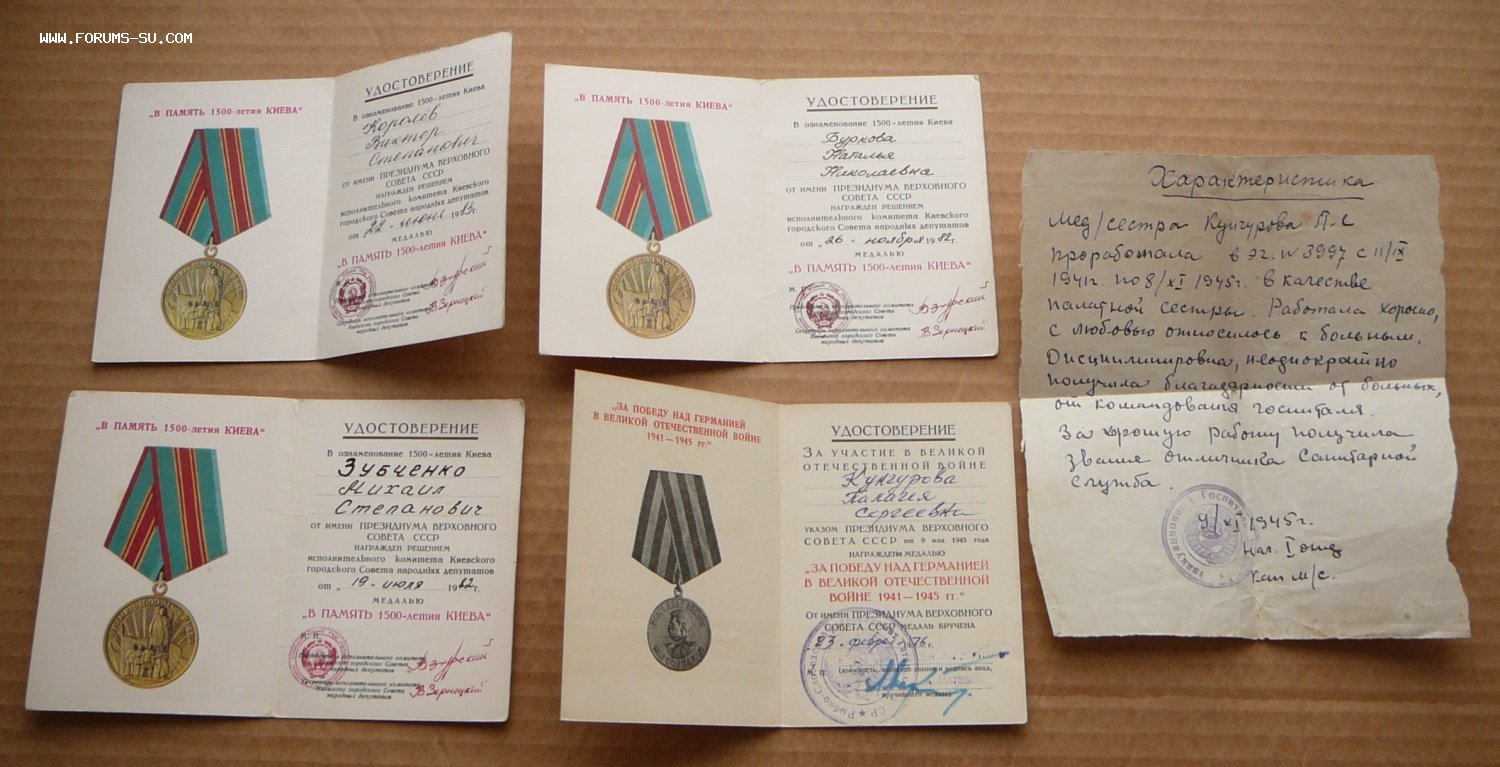 WWW.FORUMS-SU.COM
„В ПАМЯТЬ 1500-летия КИЕВА“
УДОСТОВЕРЕНИЕ
В ознаменование 1500-летия Киева
Королёв
Виктор
Степанович
от имени ПРЕЗИДИУМА ВЕРХОВНОГО
СОВЕТА СССР
НАГРАЖДЕН РЕШЕНИЕМ
исполнительного комитета Киевского
городского Совета народных депутатов
от „22 - июне 1983г.
МЕДАЛЬЮ
„В ПАМЯТЬ 1500-летия КИЕВА“
исполнительного комитета
Киевского городского Совета
народных депутатов
Секретарь исполнительного комитета
Киевского городского Совета
народных депутатов
В.Згурский
В.Зерницкий
„В ПАМЯТЬ 1500-летия КИЕВА“
УДОСТОВЕРЕНИЕ
В ознаменование 1500-летия Киева
Буркова
Наталья
Николаевна
от имени ПРЕЗИДИУМА ВЕРХОВНОГО
СОВЕТА СССР
НАГРАЖДЕН РЕШЕНИЕМ
исполнительного комитета Киевского
городского Совета народных депутатов
от „26 - ноября 1982г.
МЕДАЛЬЮ
„В ПАМЯТЬ 1500-летия КИЕВА“
М.
Председатель исполнительного комитета
Киевского городского Совета
народных депутатов
Секретарь исполнительного комитета
Киевского городского Совета
народных депутатов
В.Згурский
В.Зерницкий
„В ПАМЯТЬ 1500-летия КИЕВА“
УДОСТОВЕРЕНИЕ
В ознаменование 1500-летия Киева
Зубченко
Михаил
Степанович
от имени ПРЕЗИДИУМА ВЕРХОВНОГО
СОВЕТА СССР
НАГРАЖДЕН РЕШЕНИЕМ
исполнительного комитета Киевского
городского Совета народных депутатов
от „19 - июля 1982г.
МЕДАЛЬЮ
„В ПАМЯТЬ 1500-летия КИЕВА“
Председатель исполнительного комитета
Киевского городского Совета
народных депутатов
Секретарь исполнительного комитета
Киевского городского Совета
народных депутатов
В.Згурский
В.Зерницкий
„ЗА ПОБЕДУ НАД ГЕРМАНИЕЙ
В ВЕЛИКОЙ ОТЕЧЕСТВЕННОЙ ВОЙНЕ
1941—1945 гг.“
УДОСТОВЕРЕНИЕ
ЗА УЧАСТИЕ В ВЕЛИКОЙ
ОТЕЧЕСТВЕННОЙ ВОЙНЕ
Кунгурова
Палагея
Сергеевна
УКАЗОМ ПРЕЗИДИУМА ВЕРХОВНОГО
СОВЕТА СССР от 9 мая 1945 года
НАГРАЖДЕН МЕДАЛЬЮ
„ЗА ПОБЕДУ НАД ГЕРМАНИЕЙ
В ВЕЛИКОЙ ОТЕЧЕСТВЕННОЙ
ВОЙНЕ 1941—1945 гг.“
ОТ ИМЕНИ ПРЕЗИДИУМА ВЕРХОВНОГО
СОВЕТА СССР МЕДАЛЬ ВРУЧЕНА
23 - февр 1976 г.
М. П.
(должность, воинское звание и подпись лица,
вручившего медаль)
Характеристика
Мед/сестра Кунгурова П.С
проработала в эг. N 3997 с 11/IX
1941г. по 8/XI 1945г. в качестве
палатной сестры. Работала хорошо,
с любовью относилось к больным.
Дисциплинирована, неоднократно
получила благодарности от больных,
от командования госпиталя.
За хорошую работу получила
звание отличника санитарной
служба.
Эвакуационный Госпиталь
9/XI 1945г.
Нач. I отд
кап м/с.